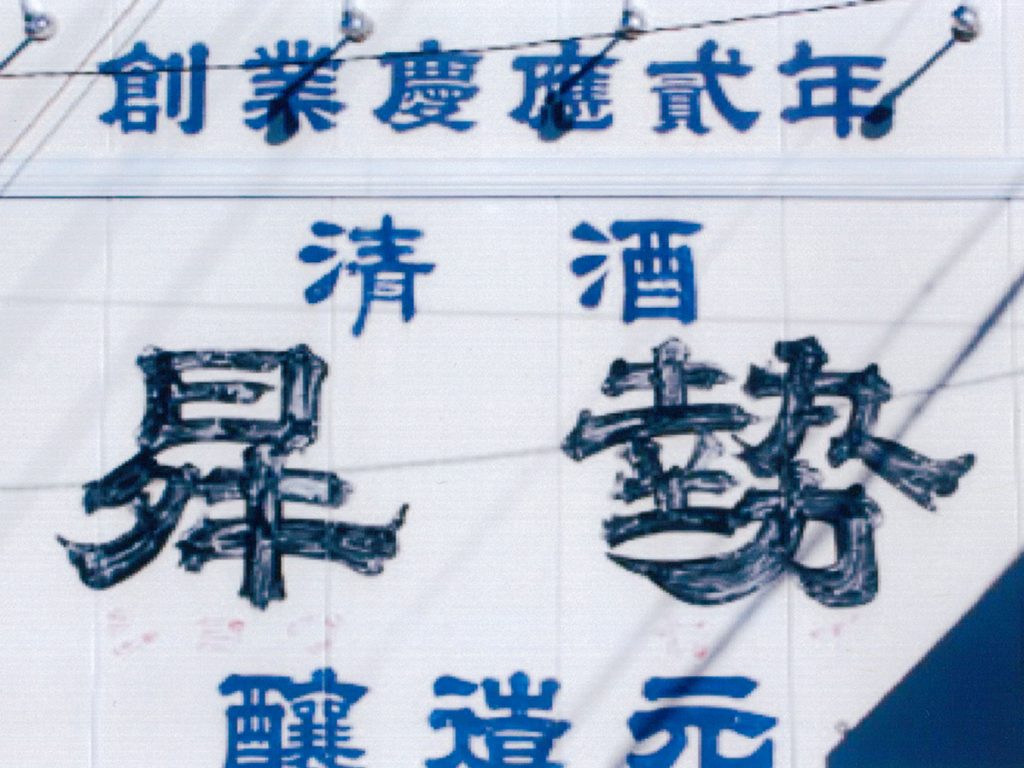 創業慶應貳年
清酒
昇勢
釀造元